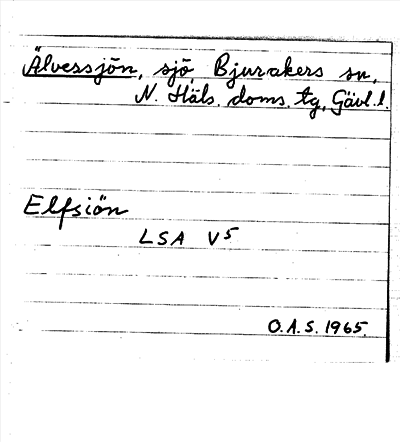 Älvessjön, sjö, Bjurakers sn,
N. Häls. doms. tg, Gävl. l.
Elfsiön
LSA V5
O.A.S. 1965.